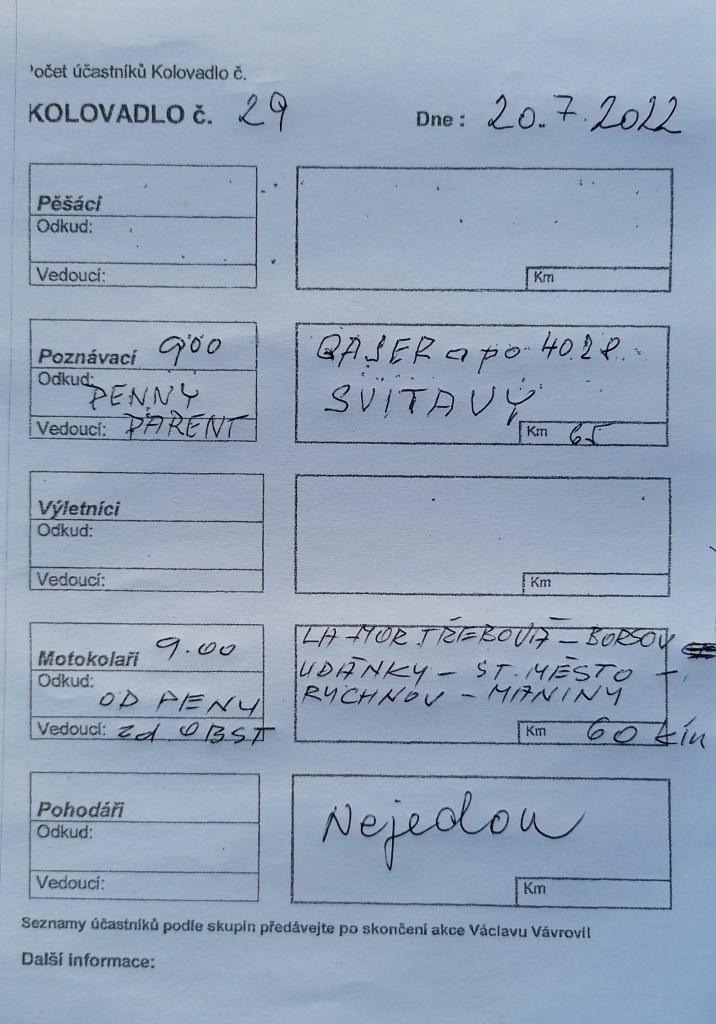 Počet účastníků Kolovadlo č.
KOLOVADLO č. 29 Dne : 20.7.2022
Pěšáci
Odkud:
Vedoucí:
Km
Poznávací 900
Odkud:
PENNY
Vedoucí: PARENT
a po 40 28
SVITAVY
Km 65
Výletníci
Odkud:
Vedoucí:
Km
Motokolaři 9.00
Odkud:
OD PENY
Vedoucí: zd OBST
MOR. TŘEBOVÁ - BORSOV
UDÁNKY - ST. MĚSTO -
RYCHNOV - MANINY
Km 60
Pohodáři
Odkud:
Vedoucí:
Nejedou
Km
Seznamy účastníků podle skupin předávejte po skončení akce Václavu Vávrovi!
Další informace: